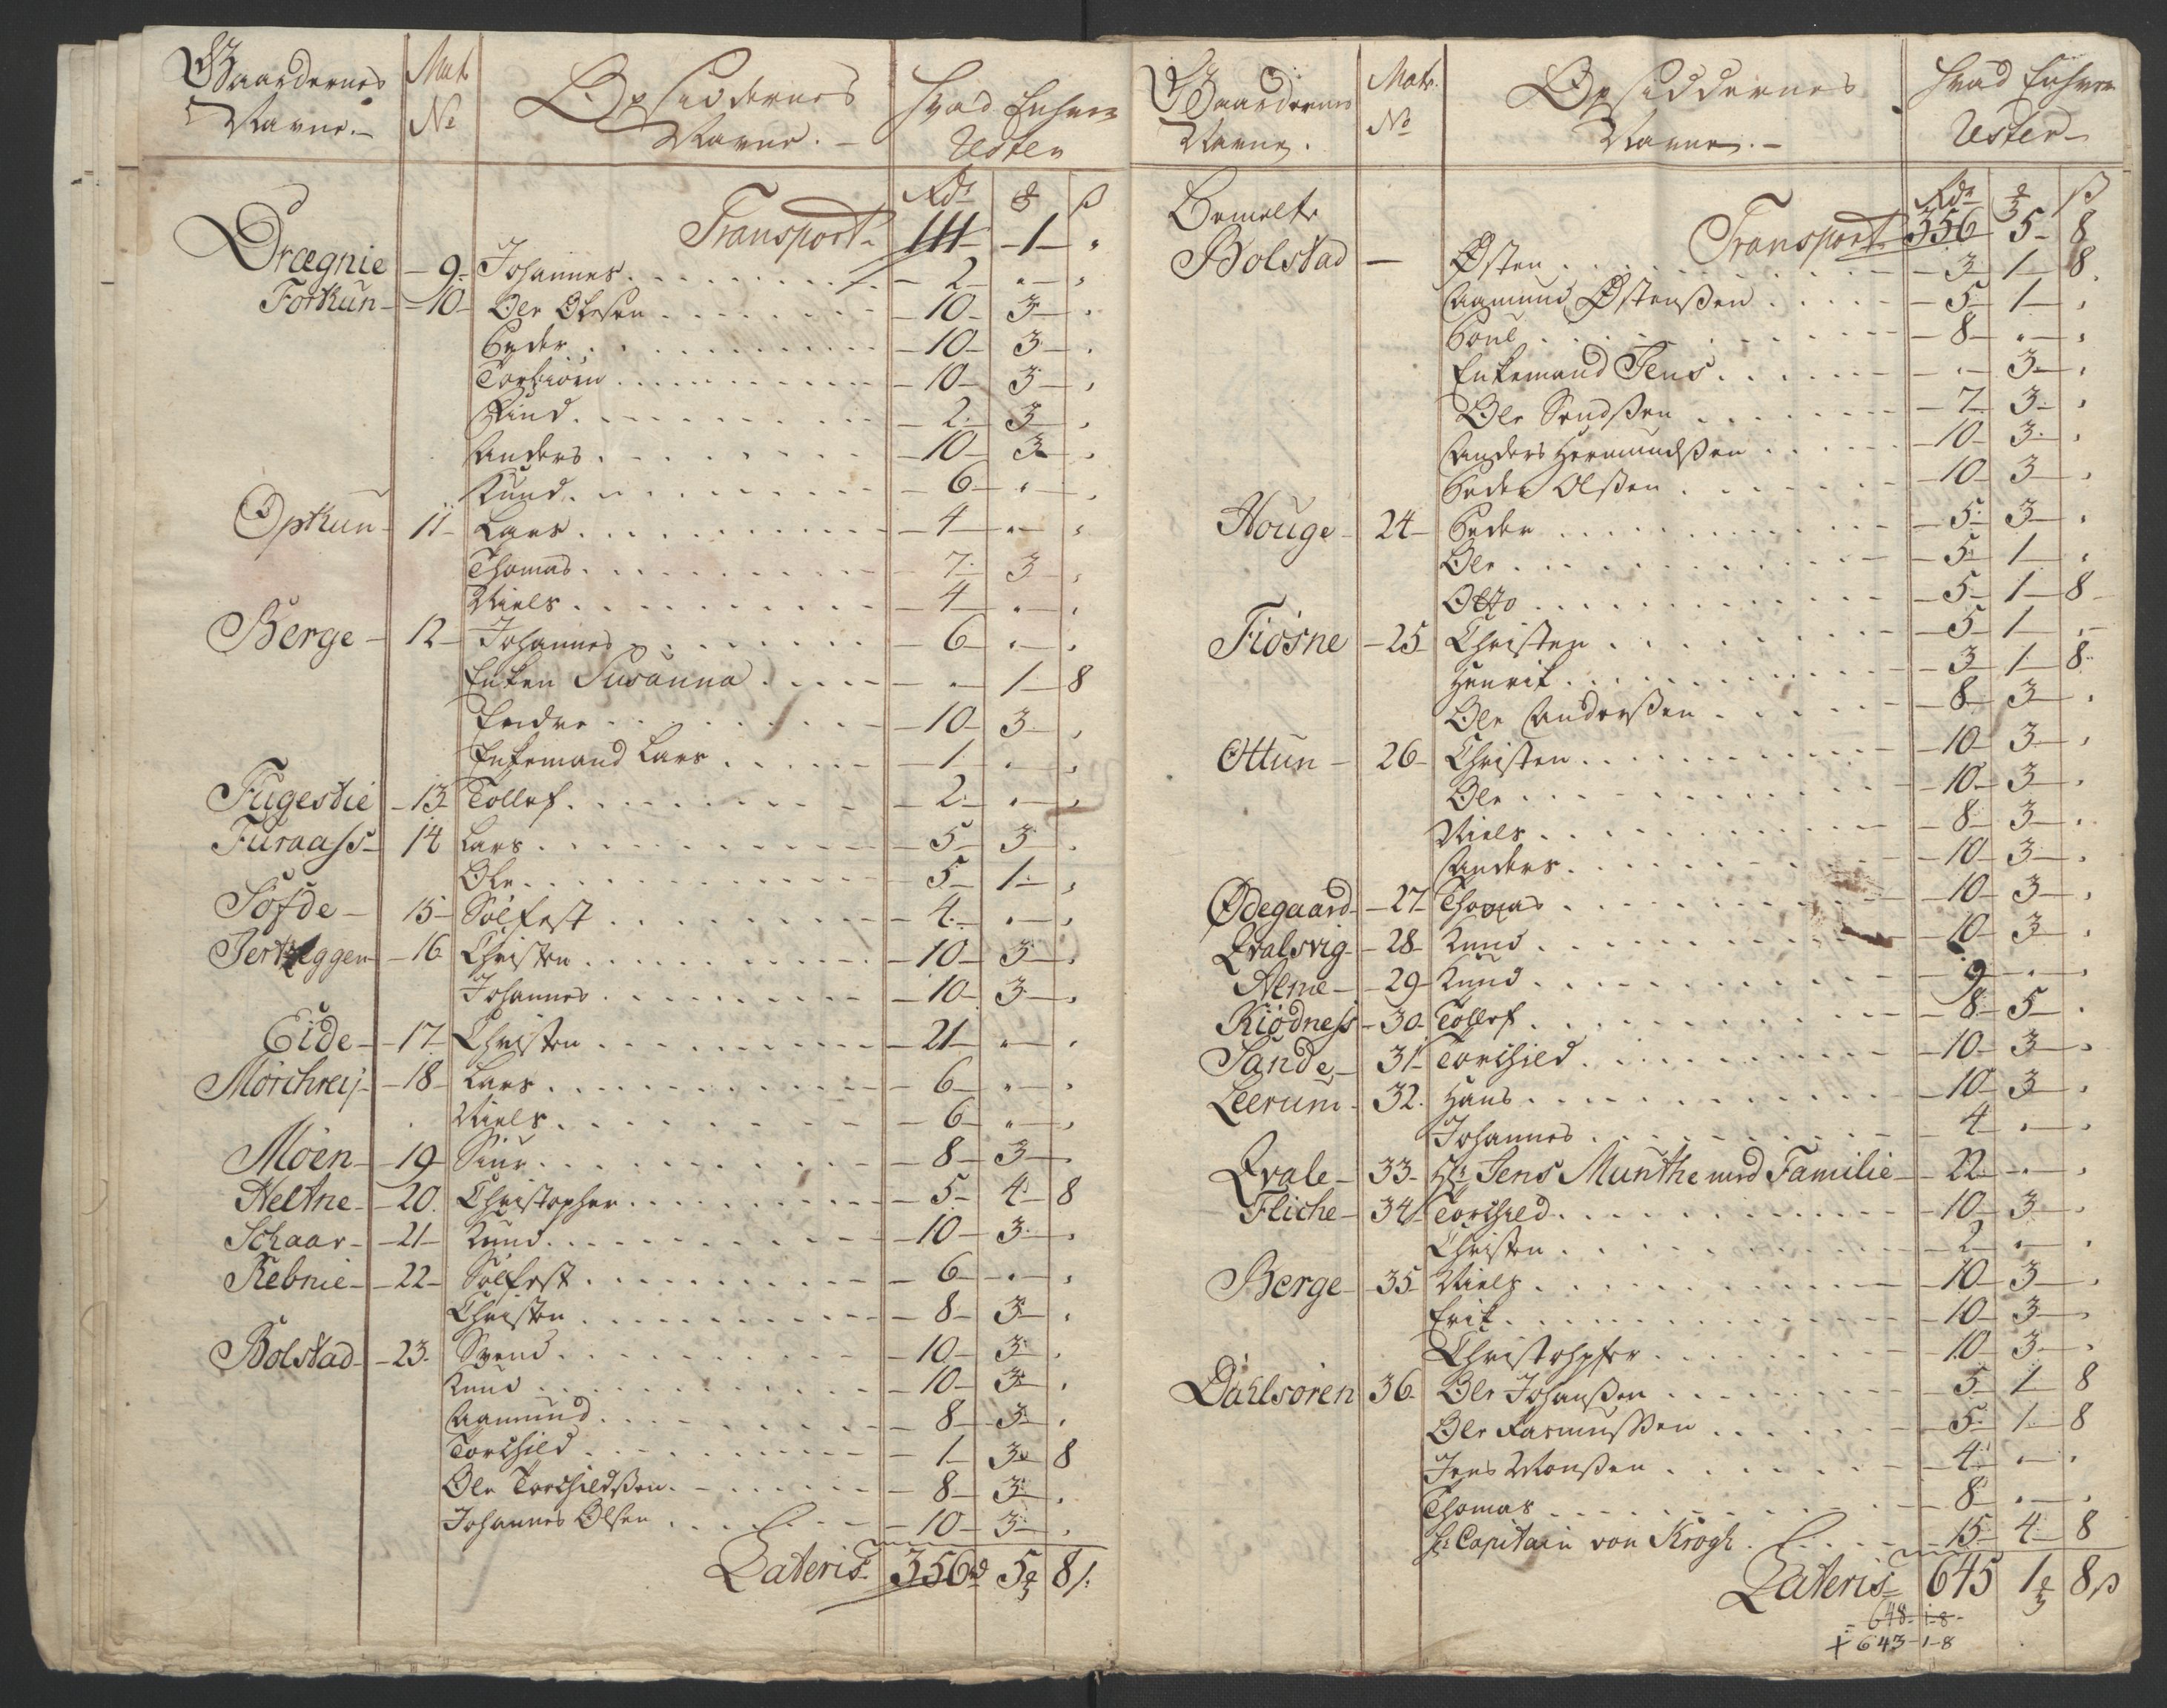 Gaardernes Navne.
Mat No
Opsiddernes Navne.
Hvad Enhver Udster
Rdr ₰ ß
Transport 111 1 "
Drægnie 9 Johannes 2 " "
Forthun 10 Ole Olesen 10 3 "
Peder 10 3 "
Torbiørn 10 3 "
Find 2 3 "
Anders 10 3 "
Knud 6 " "
Opthun 11 Lars 4 " "
Thomas 7 3 "
Niels 4 " "
Berge 12 Johannes 6 " "
Enken Susanna " 1 8
Endre 10 3 "
Enkemand Lars 1 " "
Fugestie 13 Tollef 2 " "
Furaass 14 Lars 5 3 "
Ole 5 1 "
Søfde 15 Sølfest 4 " "
16 Christen 10 3 "
Johannes 10 3 "
Eide 17 Christen 21 " "
Mørchreij 18 Lars 6 " "
Niels 6 " "
Moen 19 Siur 8 3 "
Neltne 20 Christopher 5 4 8
Schaar 21 Knud 10 3 "
Rebnie 22 Sølfest 6 " "
Christen 8 3 "
Bolstad 23 Svend 10 3 "
Knud 10 3 "
Aamund 8 3 "
Torchild 1 3 8
Ole Torchildßen 8 3 "
Johannes Olsen 10 3 "
Lateris 356 rd 5 8 ß
Gaardernes Navne.
Matr. No
Opsiddernes Navne.
Hvad Enhver Udster
Rdr ₰ ß
Transport 356 5 8
Bemelte
Bolstad Østen 3 1 8
Aamund Østenßen 5 1 "
Poul 8 " "
Enkemand Jens " 3 "
Ole Svendßen 7 3 "
Anders Hermundßen 10 3 "
Peder Olßen 10 3 "
Houge 24 Peder 5 3 "
Ole 5 1 "
Otto 5 1 8
Fiøsne 25 Christen 5 1 "
Henrik 3 1 8
Ole Anderßen 8 3 "
Ottun 26 Christen 10 3 "
Ole 10 3 "
Niels 8 3 "
Anders 10 3 "
Ødegaard 27 Thomas 10 3 "
Qvalsvig 28 Knud 10 3 "
Alme 29 Knud 9 " "
Kiødness 30 Tollef 8 5 "
Sande 31 Torchild 10 3 "
Leerum 32 Hans 10 3 "
Johannes 4 " "
Qvale 33 Hr Jens Munthe med Familie 22 " "
Fliche 34 Torchild 10 3 "
Christen 2 " "
Berge 35 Niels 10 3 "
Erik 10 3 "
Christohpfer 10 3 "
Dahlsøren 36 Ole Johanßen 5 1 8
Ole Rasmusßen 5 1 8
Jens Monßen 4 " "
Thomas 8 " "
Hr Capitain von Krogh 15 4 8
Lateris 645 1 8 ß
648-1-8
+ 643-1-8